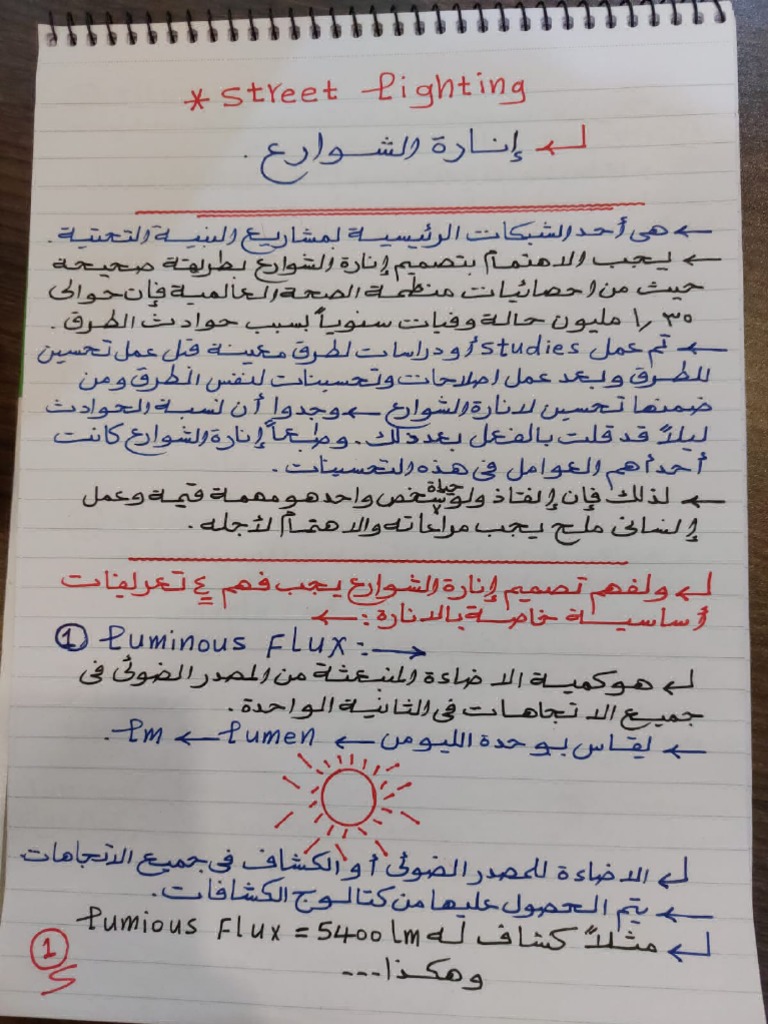 * Street lighting
إنارة الشوارع .
← هى أحد الشبكات الرئيسية لمشاريع البنية التحتية .
← يجب الاهتمام بتصميم إنارة الشوارع بطريقة صحيحة
حيث من احصائيات منظمة الصحة العالمية فإن حوالى
١٫٣٥ مليون حالة وفيات سنوياً بسبب حوادث الطرق .
← تم عمل studies أو دراسات لطرق معينة قبل عمل تحسين
للطرق وبعد عمل اصلاحات وتحسينات لنفس الطرق ومن
ضمنها تحسين لانارة الشوارع ← وجدوا أن نسبة الحوادث
ليلاً قد قلت بالفعل بعد ذلك . وطبعاً إنارة الشوارع كانت
أحد أهم العوامل فى هذه التحسينات .
← لذلك فإن إنقاذ ولو حياة شخص واحد هو مهمة قيمة وعمل
إنسانى ملح يجب مراعاته والاهتمام لأجله .
ولفهم تصميم إنارة الشوارع يجب فهم ٤ تعريفات
أساسية خاصة بالانارة : ←
① Luminous Flux :- →
هو كمية الاضاءة المنبعثة من المصدر الضوئى فى
جميع الاتجاهات فى الثانية الواحدة .
← يقاس بوحدة الليومن ← lumen ← lm .
الاضاءة للمصدر الضوئى أو الكشاف فى جميع الاتجاهات
← يتم الحصول عليها من كتالوج الكشافات .
مثلاً كشاف له Lumious Flux = 5400 lm
وهكذا ---
①